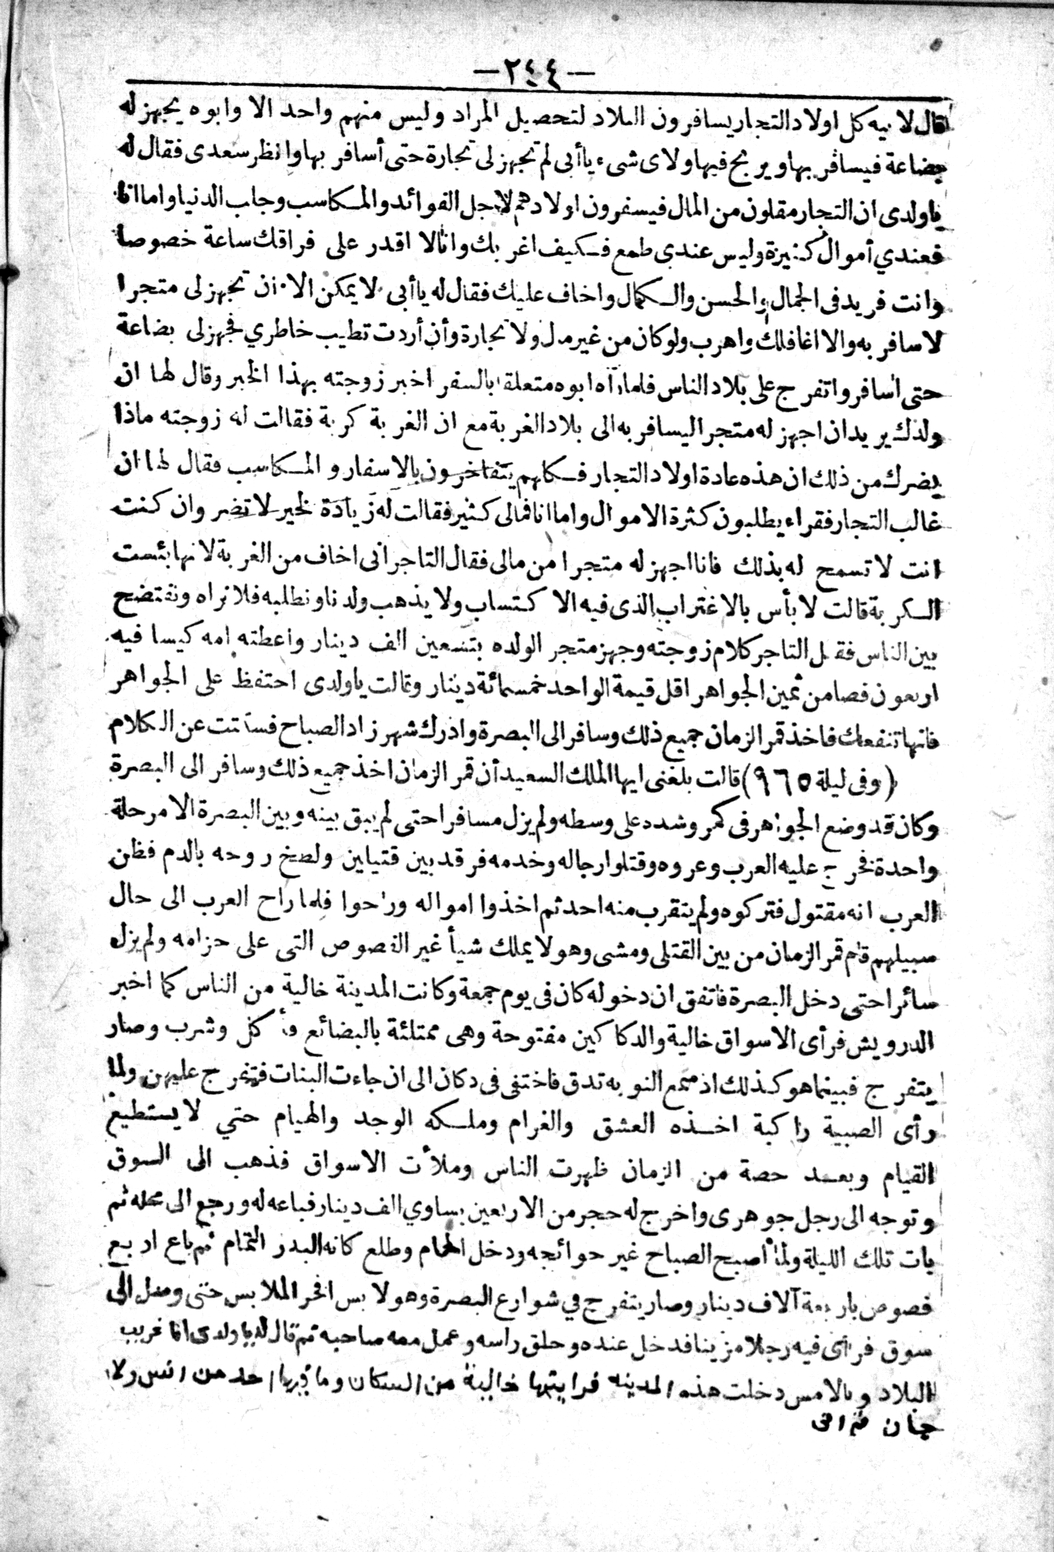 —٢٤٤—
قال لابيه كل اولاد التجار يسافرون البلاد لتحصيل المراد وليس منهم واحد الا وابوه يجهز له
بضاعة فيسافر بها ويربح فيها ولاى شىء ياأبى لم تجهز لى تجارة حتى أسافر بها وانظر سعدى فقال له
ياولدى ان التجار مقلون من المال فيسفرون اولادهم لاجل الفوائد والمكاسب وجلب الدنيا واما انا
فعندي أموال كثيرة وليس عندى طمع فكيف اغربك وانا لا اقدر على فراقك ساعة خصوصا
وانت فريد فى الجمال والحسن والكمال واخاف عليك فقال له ياأبى لا يمكن الا ان تجهز لى متجرا
لاسافر به والا اغافلك واهرب ولو كان من غير مال ولا تجارة وأن أردت تطيب خاطري فجهز لى بضاعة
حتى اسافر واتفرج على بلاد الناس فلما رآه ابوه متعلقا بالسفر اخبر زوجته بهذا الخبر وقال لها ان
ولدك يريد ان اجهز له متجرا ليسافر به الى بلاد الغربة مع ان الغربة كربة فقالت له زوجته ماذا
يضرك من ذلك ان هذه عادة اولاد التجار فكلهم يتفاخرون بالاسفار والمكاسب فقال لها ان
غالب التجار فقراء يطلبون كثرة الاموال واما انا فمالى كثير فقالت له زيادة الخير لا تضر وان كنت
انت لا تسمح له بذلك فانا اجهز له متجرا من مالى فقال التاجر انى اخاف من الغربة لانها بئست
الكربة قالت لا بأس بالاغتراب الذى فيه الاكتساب ولا يذهب ولدنا ونطلبه فلا نراه ونفتضح
بين الناس فقبل التاجر كلام زوجته وجهز متجر الولده بتسعين الف دينار واعطته امه كيسا فيه
اربعون فصا من ثمين الجواهر اقل قيمة الواحد خمسمائة دينار وقالت ياولدى احتفظ على الجواهر
فانها تنفعك فاخذ قمر الزمان جميع ذلك وسافر الى البصرة وادرك شهر زاد الصباح فسكتت عن الكلام
(وفى ليلة ٩٦٥) قالت بلغنى ايها الملك السعيد أن قمر الزمان اخذ جميع ذلك وسافر الى البصرة
وكان قد وضع الجواهر فى كمر وشده على وسطه ولم يزل مسافرا حتى لم يبق بينه وبين البصرة الا مرحلة
واحدة فخرج عليه العرب وعروه وقتلوا رجاله وخدمه فرقد بين قتيلين ولطخ روحه بالدم فظن
العرب انه مقتول فتركوه ولم يتقرب منه احد ثم اخذوا امواله وراحوا فلما راح العرب الى حال
سبيلهم قام قمر الزمان من بين القتلى ومشى وهو لا يملك شيأ غير الفصوص التى على حزامه ولم يزل
سائرا حتى دخل البصرة فاتفق ان دخوله كان فى يوم جمعة وكانت المدينة خالية من الناس كما اخبر
الدرويش فرأى الاسواق خالية والدكاكين مفتوحة وهى ممتلئة بالبضائع فأكل وشرب وصار
يتفرج فبينما هو كذلك اذ سمع النوبه تدق فاختفى فى دكان الى ان جاءت البنات فتفرج عليهن ولما
رأى الصبية راكبة اخذه العشق والغرام وملكه الوجد والهيام حتي لا يستطيع
القيام وبعد حصة من الزمان ظهرت الناس وملأت الاسواق فذهب الى السوق
وتوجه الى رجل جوهرى واخرج له حجر من الاربعين يساوي الف دينار فباعه له ورجع الى محله ثم
بات تلك الليلة ولما أصبح الصباح غير حوائجه ودخل الحمام وطلع كانه البدر التمام ثم باع اربع
فصوص باربعة آلاف دينار وصار يتفرج في شوارع البصرة وهو لابس افخر الملابس حتى وصل الى
سوق فرأى فيه رجلا مزينا فدخل عنده وحلق راسه وعمل معه صاحبه ثم قال له ياولدى انا غريب
البلاد وبالامس دخلت هذه المدينه فرايتها خالية من السكان وما فيها احد من انس ولا
جان ثم انى